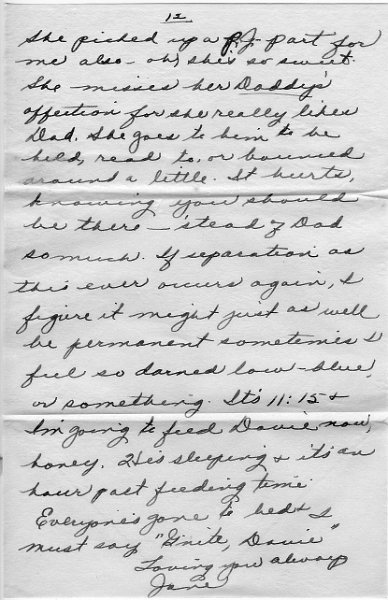 12
She picked up a p.J. part for
me also - oh, she's so sweet.
She misses her Daddy's
affection for she really likes
Dad. She goes to him to be
held, read to, or bounced
around a little. It hurts,
knowing you should
be there - 'stead of Dad
so much. If separation as
this ever occurs again, I
figure it might just as well
be permanent sometimes I
feel so darned low-blue,
or something. It's 11:15 &
I'm going to feed Davie now,
honey. He's sleeping & it's an
hour past feeding time.
Everyone's gone to bed & I
must say "G'nite, Davie"
Loving you always
Jane